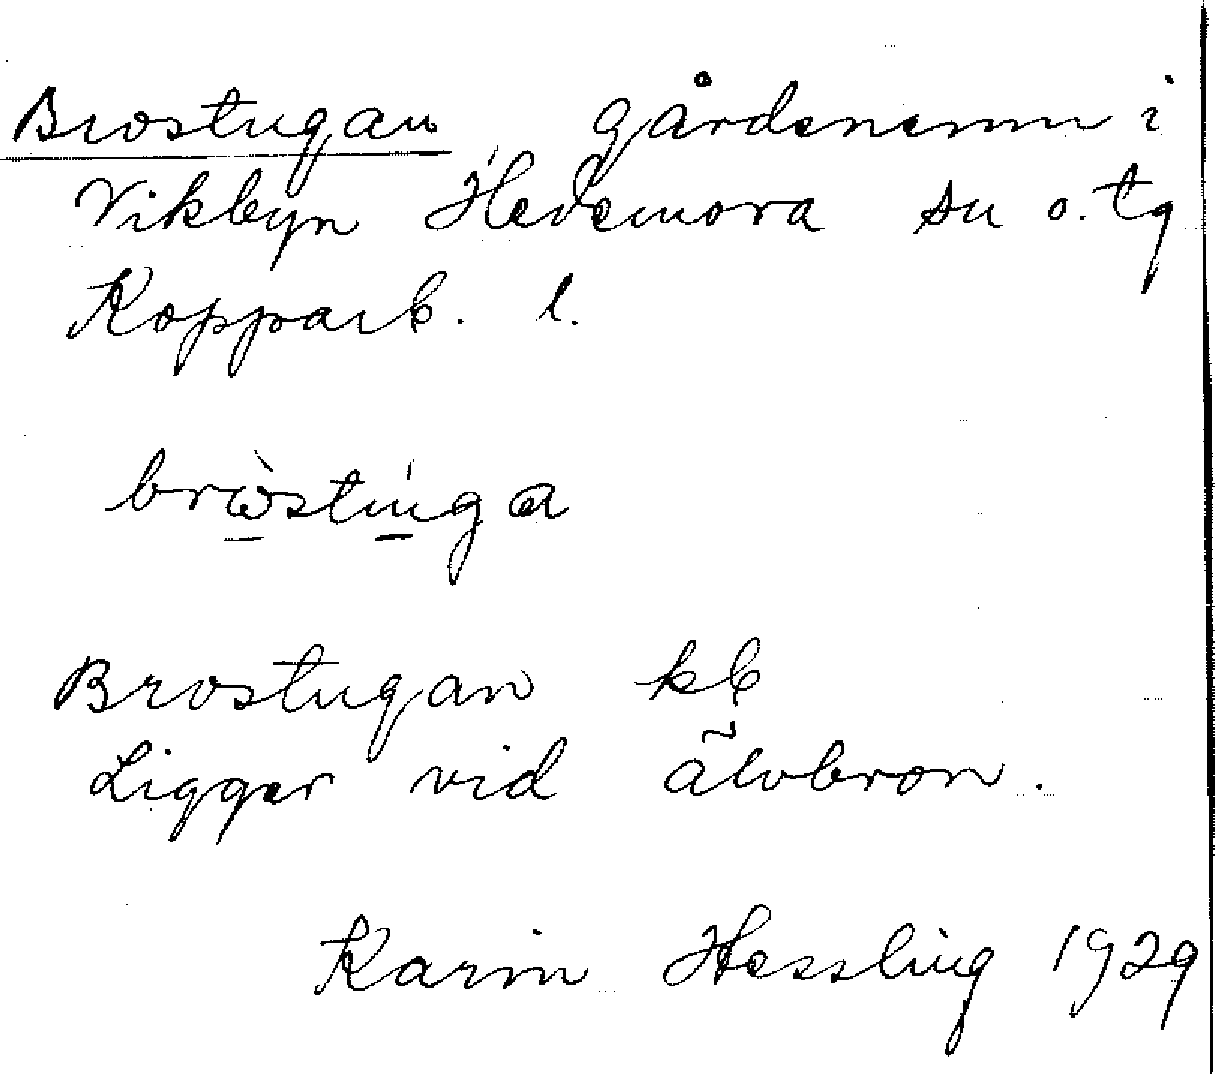 Brostugan gårdsnamn i
Vikbyn Hedemora sn o. tg
Kopparb. l.
bròstúga
Brostugan kb
Ligger vid älvbron.
Karin Hessling 1929